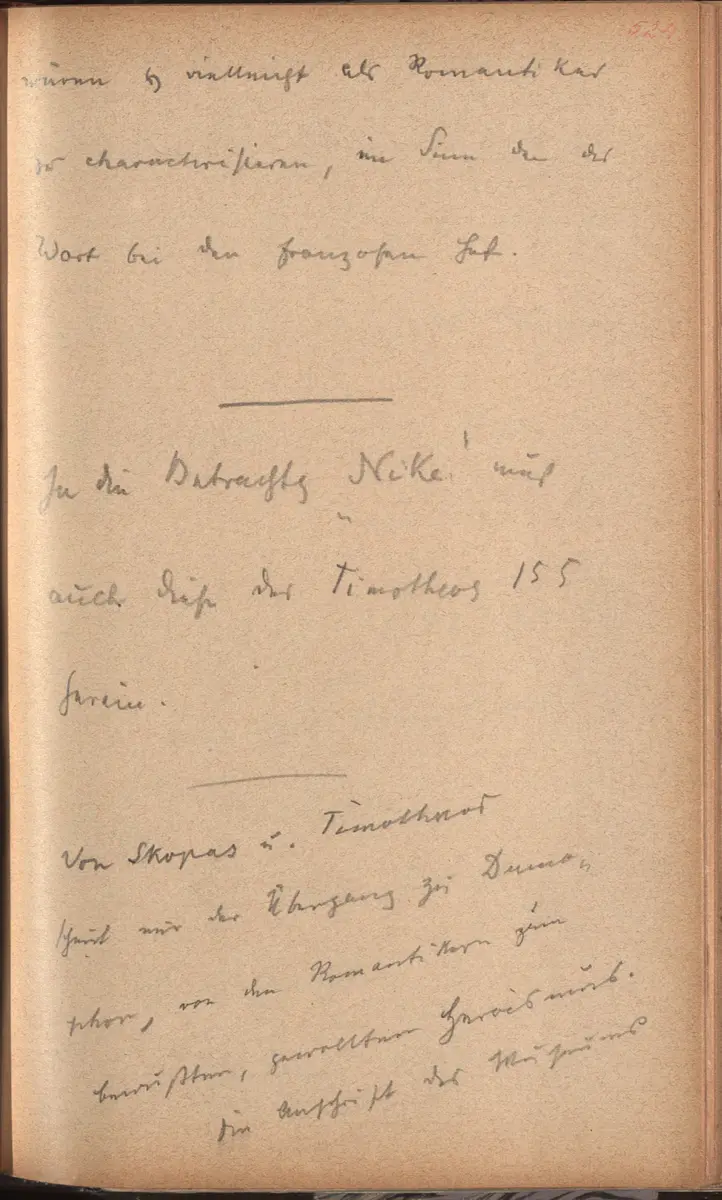 524
wären sie vielleicht als Romantiker
zu characterisieren, im Sinn den das
Wort bei den Franzosen hat.
In die Betrachtg Nike! muß
auch diese des Timotheos 155
herein.
Von Skopas u. Timotheos
scheint mir der Übergang zu Damo,,
phon, von den Romantikern zum
bewußten, gewollten Heroismus.
Die Anschrift des Museums